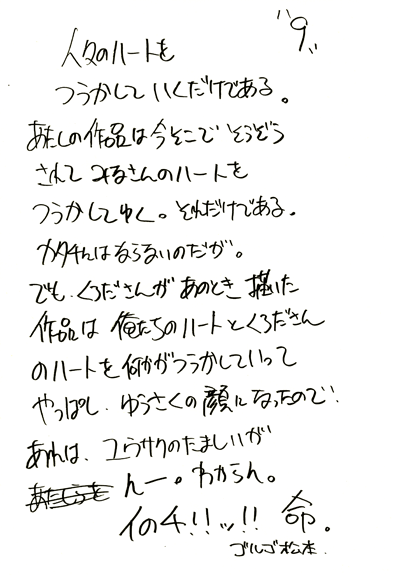 "9"
人々のハートを
つうかしていくだけである。
あたしの作品は今そこでそうぞう
されて みなさんのハートを
つうかしてゆく。それだけである。
カタチんはならないのだが。
でも、くろださんがあのとき描いた
作品は 俺たちのハートとくろださん
のハートを何かがつうかしていって
やっぱし、ゆうさくの顔になったので
あれは、ユウサクのたましいが
んー。わからん。
イのチ!!ッ!! 命。
ゴルゴ松本